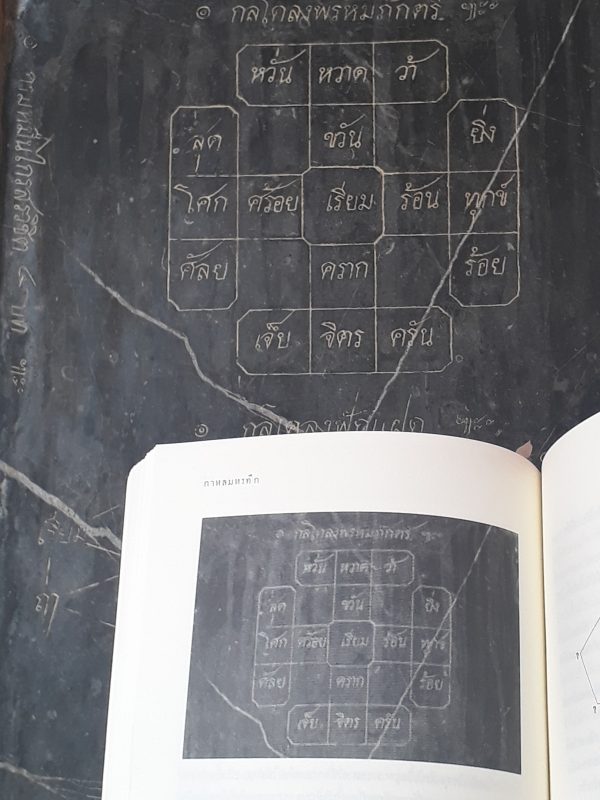 ๏ กลโคลงพรหมภักตร ๚ะ๛
หวั่น หวาด ว้า
ลุ่ด ขวัน ยิ่ง
โศก ศร้อย เรียม ร้อน ทุกข์
ศัลย คราก ร้อย
เจ็บ จิตร ครัน
๏ กลโคลง
กาหลมหรทึก
๏ กลโคลงพรหมภักตร ๚ะ
หวั่น หวาด ว้า
ลุ่ด ขวัน ยิ่ง
โศก ศร้อย เรียม ร้อน ทุกข์
ศัลย คราก ร้อย
เจ็บ จิตร ครัน
เรียม